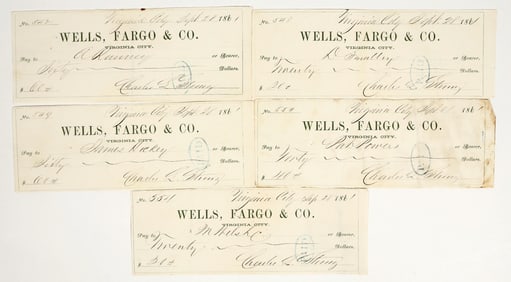 No. 542 Virginia City Sept 28 1861
WELLS, FARGO & CO.
VIRGINIA CITY.
Pay to A or Bearer,
Sixty Dollars.
$60 Charles L Strong
No. 541 Virginia City Sept 28 1861
WELLS, FARGO & CO.
VIRGINIA CITY.
Pay to D Smalley or Bearer,
Twenty Dollars.
$20 Charles L Strong
No. 549 Virginia City Sept 28 1861
WELLS, FARGO & CO.
VIRGINIA CITY.
Pay to James Hickey or Bearer,
Sixty Dollars.
$60 Charles L Strong
No. Virginia City Sept 1861
WELLS, FARGO & CO.
VIRGINIA CITY.
Pay to Pat Powers or Bearer,
Dollars.
$ Charles L Strong
No. 554 Virginia City Sep 28 1861
WELLS, FARGO & CO.
VIRGINIA CITY.
Pay to M or Bearer,
Twenty Dollars.
$20 Charles L Strong